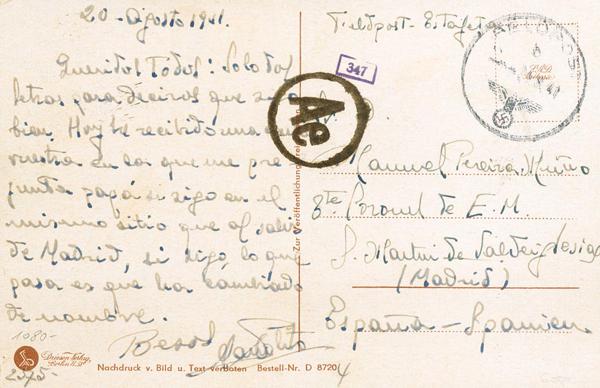 20-Agosto 1941.
Queridos Todos: Solo dos
letras para deciros que sigo
bien. Hoy he recibido una
vuestra en la que me pre-
gunta papá si sigo en el
mismo sitio que al salir
de Madrid, si sigo, lo que
pasa es que ha cambiado
de nombre.
Besos
Manolito
Feldpost-Estafeta
FELDPOST
347
Ae
Manuel Pereira
Coronel de E.M.
S. Martín de Valdeiglesias
(Madrid)
España - Spanien.
Zur Veröffentlichung
1080-
Driesen Verlag,
Berlin
Nachdruck v. Bild u. Text verboten Bestell-Nr. D 8720